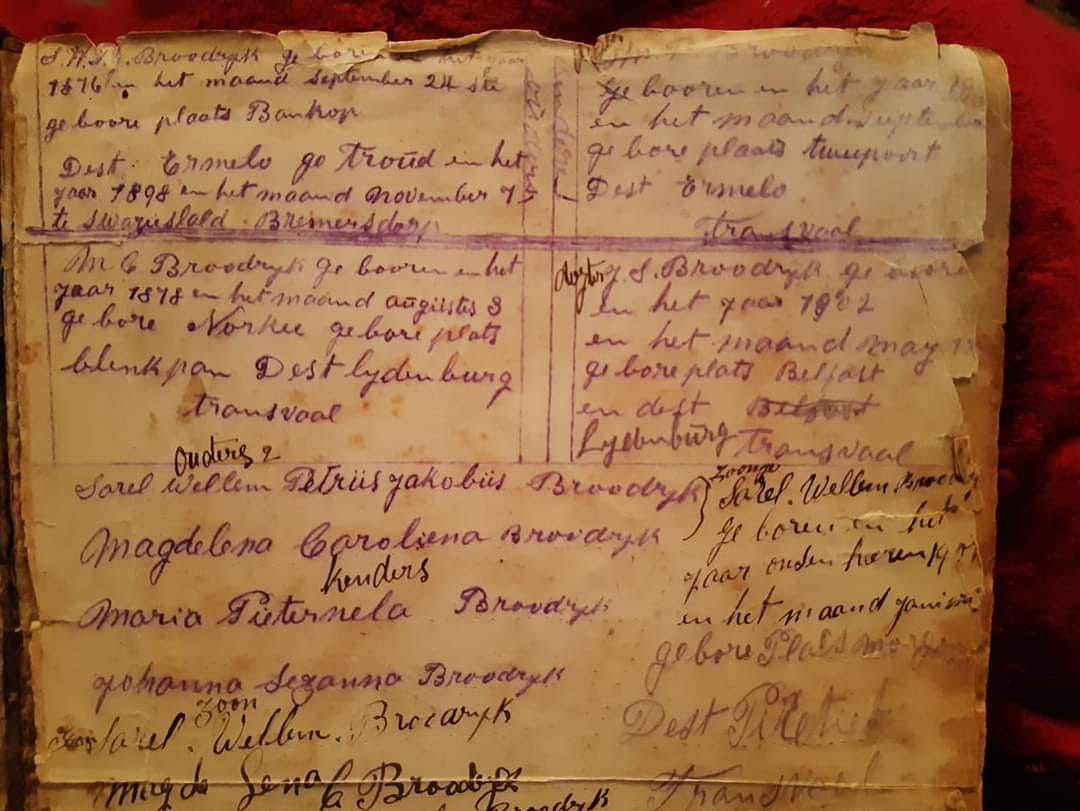 S.W.P.J. Broodryk ge boren het jaar
1876 en het maand September 24 ste
ge boore plaats Bankop
Dest. Ermelo ge troud en het
jaar 1898 en het maand november 7
te swazieslald. Bremersdorp
M C Broodryk ge booren en het
jaar 1878 en het maand augustes 3
ge bore Norkee ge bore plats
blenk pan Dest lydenburg
transvaal
ouders
kendere
Broodryk
ge booren en het jaar
en het maand September
ge bore plaats tweepoort
Dest Ermelo
transvaal
dogter J. S. Broodryk ge boore
en het jaar 1902
en het maand may
ge bore plats Belfast
en dest Belfast
Lydenburg transvaal
Ouders 2
Sarel Wellem Petrus Jakobus Broodryk
Magdelena Caroliena Broodryk
kenders
Maria Pieternela Broodryk
Johanna Sezanna Broodryk
zoon
Sarel. Wellem. Broodryk
Magda Lena C Broodryk
Broodryk
zoontje
Sarel. Wellem Broodryk
ge boren en het
jaar onsen heren
en het maand
gebore Plats
Dest Piketief
Transvaal